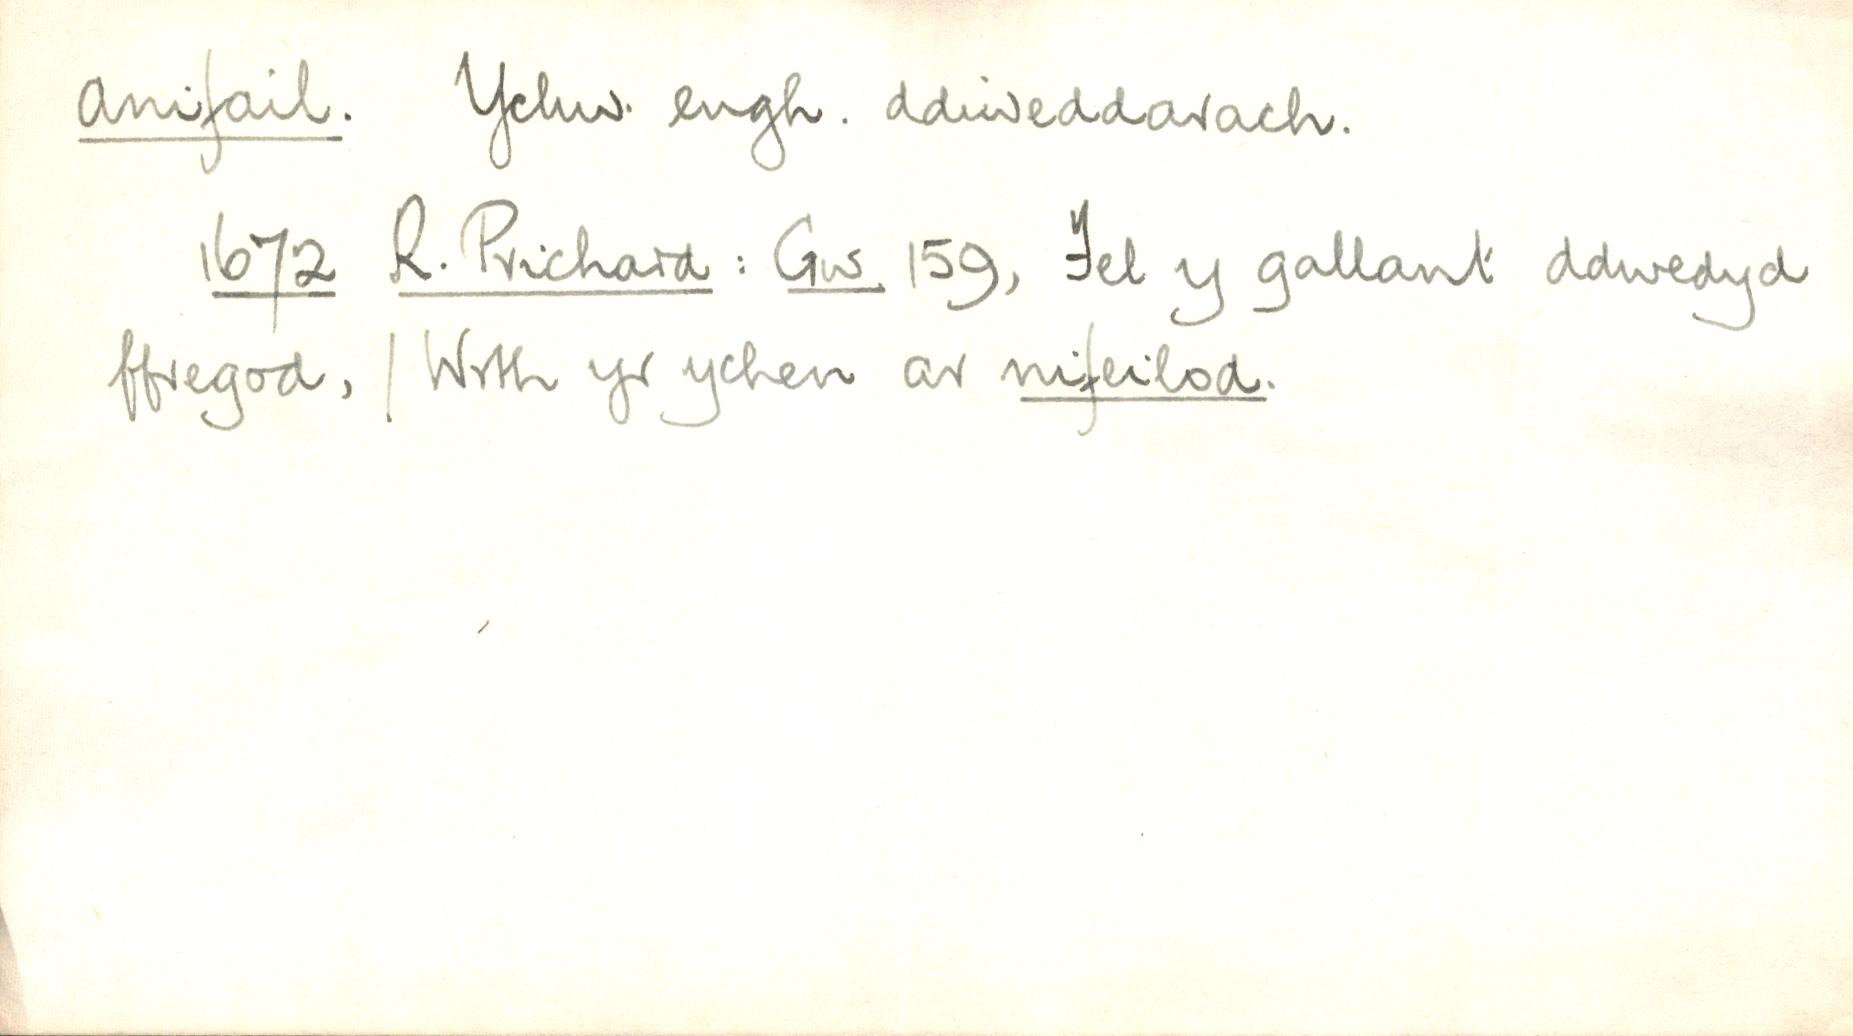 anifail. Ychw. engh. ddiweddarach.
1672 R. Prichard: Gw. 159, Fel y gallant ddwedyd
ffregod, / Wrth yr ychen ar nifeilod.